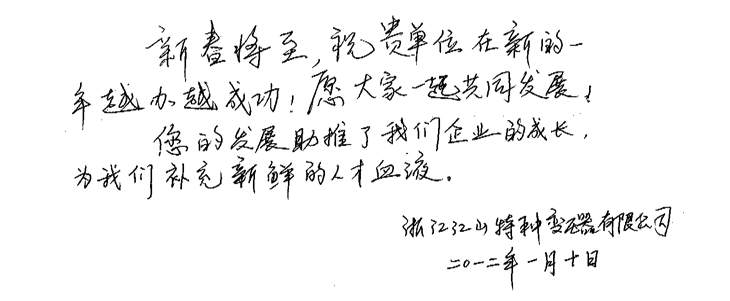 新春将至，祝贵单位在新的一
年越办越成功！愿大家一起共同发展！
您的发展助推了我们企业的成长，
为我们补充新鲜的人才血液。
浙江江山特种变压器有限公司
二〇一二年一月十日